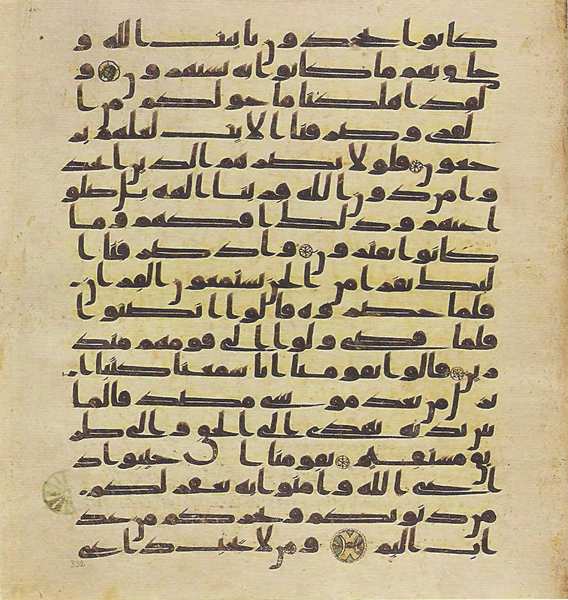 كانوا يجحدون بايت الله و
حاق بهم ما كانوا به يستهزون و
لقد اهلكنا ما حولكم من ا
لقرى وصرفنا الايت لعلهم ير
جعون فلولا نصرهم الذين اتخذ
وا من دون الله قربنا الهه بل ضلو
ا عنهم وذلك افكهم وما
كانوا يفترون واذ صرفنا ا
ليك نفرا من الجن يستمعون القران
فلما حضروه قالوا انصتوا
فلما قضي ولوا الى قومهم منذ
رين قالوا يقومنا انا سمعنا كتبا ا
نزل من بعد موسى مصدقا لما
بين يديه يهدي الى الحق والى طر
يق مستقيم يقومنا اجيبوا د
اعي الله وامنوا به يغفر لكم
من ذنوبكم ويجركم من عذ
اب اليم ومن لا يجب داعي